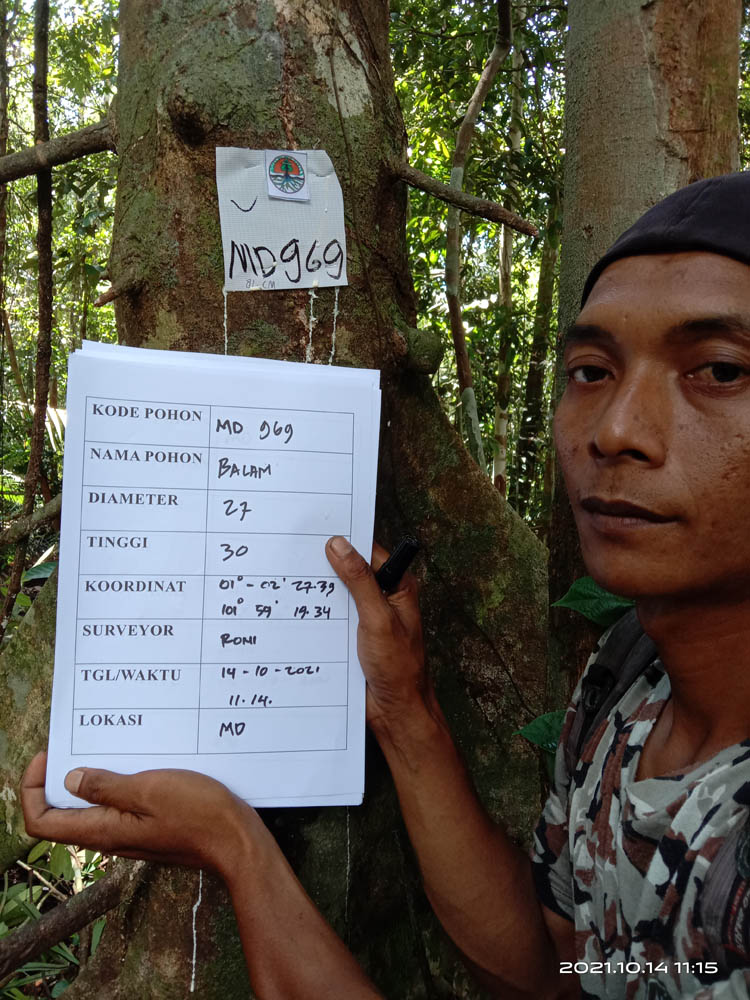 MD969
81 CM
KODE POHON MD 969
NAMA POHON BALAM
DIAMETER 27
TINGGI 30
KOORDINAT 01° - 02' 27.39
101° 59' 19.34
SURVEYOR RONI
TGL/WAKTU 14-10-2021
11.14.
LOKASI MD
2021.10.14 11:15